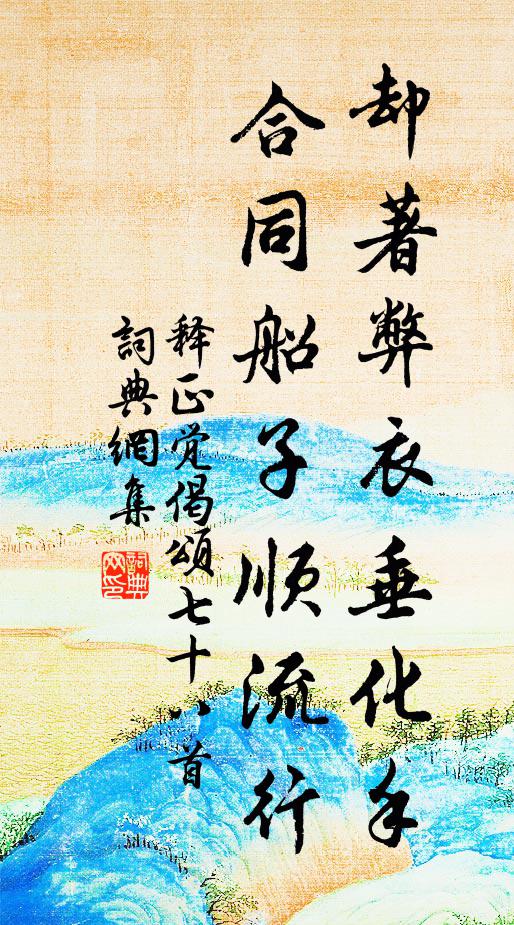 却著弊衣垂化手
合同船子顺流行
释正觉偈颂七十八首
詞典網集
詞典網印